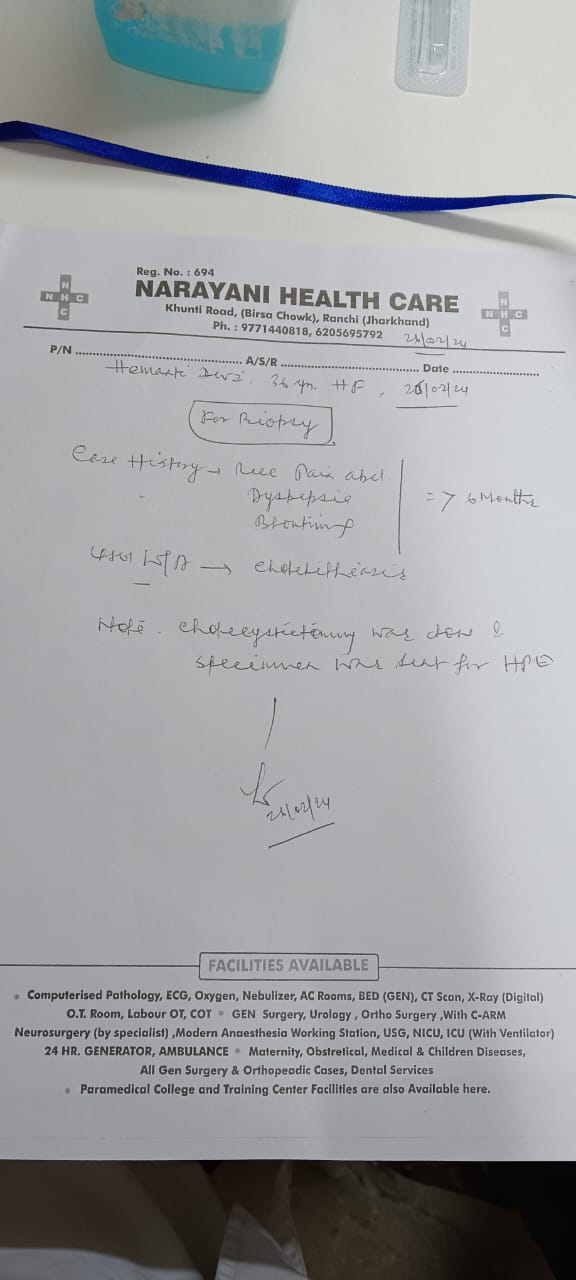 Reg. No. : 694
NARAYANI HEALTH CARE
Khunti Road, (Birsa Chowk), Ranchi (Jharkhand)
Ph. : 9771440818, 6205695792
N H C
N H C
P/N ........ A/S/R ........ Date ........
Hemanti Devi, 36 yrs. HF, 28/02/24
For Biopsy
Case History → Recc. Pain abd.
Dyspepsia
Bloating
=> 6 Months
→ cholelithiasis
Note. cholecystectomy was done &
specimen was sent for HPE
28/02/24
FACILITIES AVAILABLE
• Computerised Pathology, ECG, Oxygen, Nebulizer, AC Rooms, BED (GEN), CT Scan, X-Ray (Digital)
O.T. Room, Labour OT, COT • GEN Surgery, Urology , Ortho Surgery ,With C-ARM
Neurosurgery (by specialist) ,Modern Anaesthesia Working Station, USG, NICU, ICU (With Ventilator)
24 HR. GENERATOR, AMBULANCE • Maternity, Obstretical, Medical & Children Diseases,
All Gen Surgery & Orthopeadic Cases, Dental Services
• Paramedical College and Training Center Facilities are also Available here.